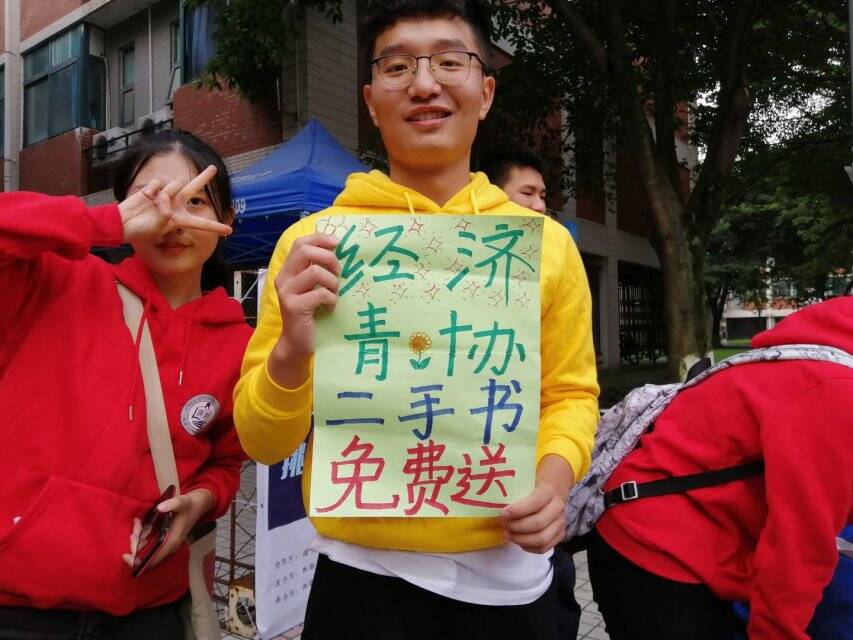 经济
青协
二手书
免费送